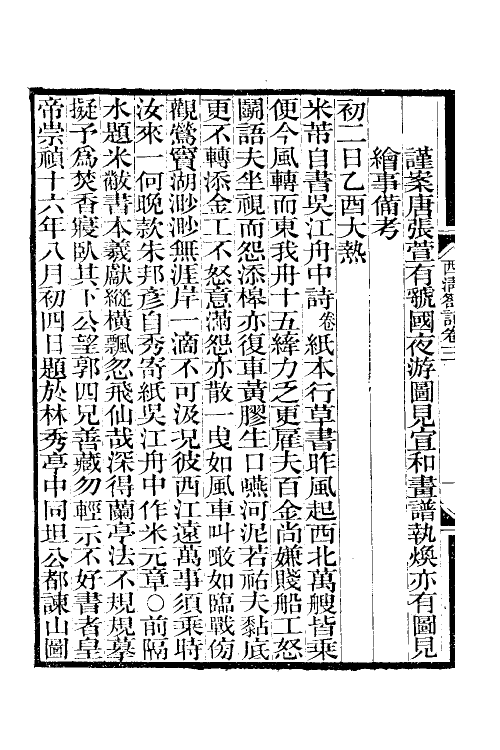 西清劄記卷二
謹案唐張萱有虢國夜游圖見宣和畫譜執煥亦有圖見
繪事備考
初二日乙酉大熱
米芾自書吳江舟中詩卷紙本行草書昨風起西北萬艘皆乘
便今風轉而東我舟十五縴力乏更雇夫百金尚嫌賤船工怒
鬬語夫坐視而怨添槹亦復車黃膠生口嚥河泥若祐夫黏底
更不轉添金工不怒意滿怨亦散一曳如風車叫噉如臨戰傍
觀鶯竇湖渺渺無涯岸一滴不可汲況彼西江遠萬事須乘時
汝來一何晚款朱邦彥自秀寄紙吳江舟中作米元章○前隔
水題米敵書本羲獻縱橫飄忽飛仙哉深得蘭亭法不規規摹
擬予爲焚香寢臥其下公望郭四兄善藏勿輕示不好書者皇
帝崇禎十六年八月初四日題於林秀亭中同坦公都諫山圖